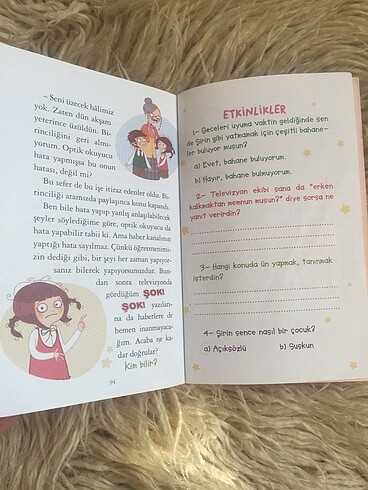 – Seni üzecek hâlimiz
yok. Zaten dün akşam
yeterince üzüldün. Bi-
rinciliğini geri almı-
yorum. Optik okuyucu
hata yapmışsa bu onun
hatası, değil mi?
Bu sefer de bu işe itiraz edenler oldu. Bi-
rinciliği aramızda paylaşınca konu kapandı.
Ben bile hata yapıp yanlış anlaşılabilecek
şeyler söylediğime göre, optik okuyucu da
hata yapabilir tabii ki. Ama haber kanalının
yaptığı hata sayılmaz. Çünkü öğretmenimi-
zin dediği gibi, bir şeyi her zaman yapıyor-
sanız bilerek yapıyorsunuzdur. Bun-
dan sonra televizyonda
gördüğüm ŞOK!
ŞOK! yazıları-
na da haberlere de
hemen inanmayaca-
ğım. Acaba ne ka-
dar doğrular?
Kim bilir?
94
ETKİNLİKLER
1- Geceleri uyuma vaktin geldiğinde sen
de Şirin gibi yatmamak için çeşitli bahane-
ler buluyor musun?
a) Evet, bahane buluyorum.
b) Hayır, bahane bulmuyorum.
2- Televizyon ekibi sana da "erken
kalkmaktan memnun musun?" diye sorsa ne
yanıt verirdin?
3- Hangi konuda ün yapmak, tanınmak
isterdin?
4- Şirin sence nasıl bir çocuk?
a) Açıksözlü b) Suskun